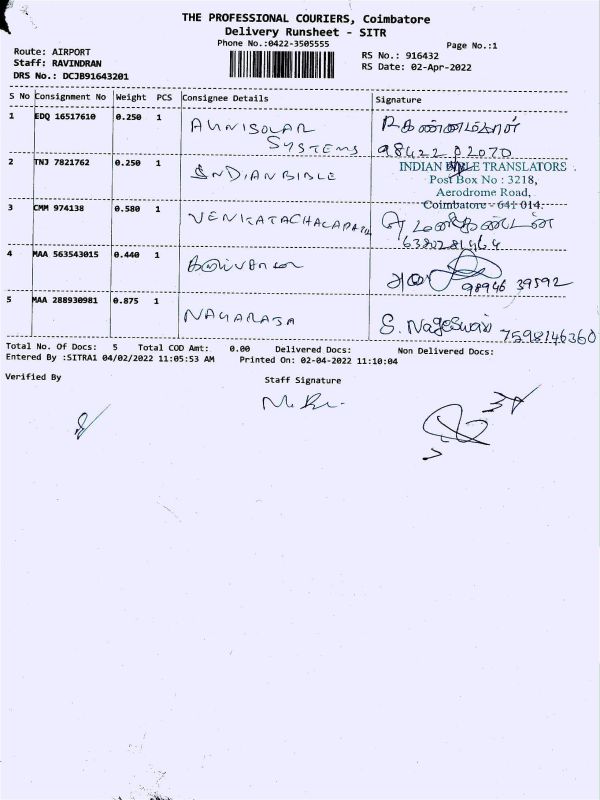 THE PROFESSIONAL COURIERS, Coimbatore
Delivery Runsheet - SITR
Phone No.:0422-3505555
Page No.:1
Route: AIRPORT
Staff: RAVINDRAN
DRS No.: DCJB91643201
RS No.: 916432
RS Date: 02-Apr-2022
S No Consignment No Weight PCS Consignee Details Signature
1 EDQ 16517610 0.250 1 AUNISOLAR
SYSTEMS
98422 02070
2 TNJ 7821762 0.250 1 INDIANBIBLE
INDIAN BIBLE TRANSLATORS
Post Box No : 3218,
Aerodrome Road,
Coimbatore - 641 014.
3 CMM 974138 0.580 1 VENKATACHALAPATHY
6380281464
4 MAA 563543015 0.440 1
98946 39592
5 MAA 288930981 0.875 1 NAGARAJA S. Nageswari 7598146360
Total No. Of Docs: 5 Total COD Amt: 0.00 Delivered Docs: Non Delivered Docs:
Entered By :SITRA1 04/02/2022 11:05:53 AM Printed On: 02-04-2022 11:10:04
Verified By
Staff Signature